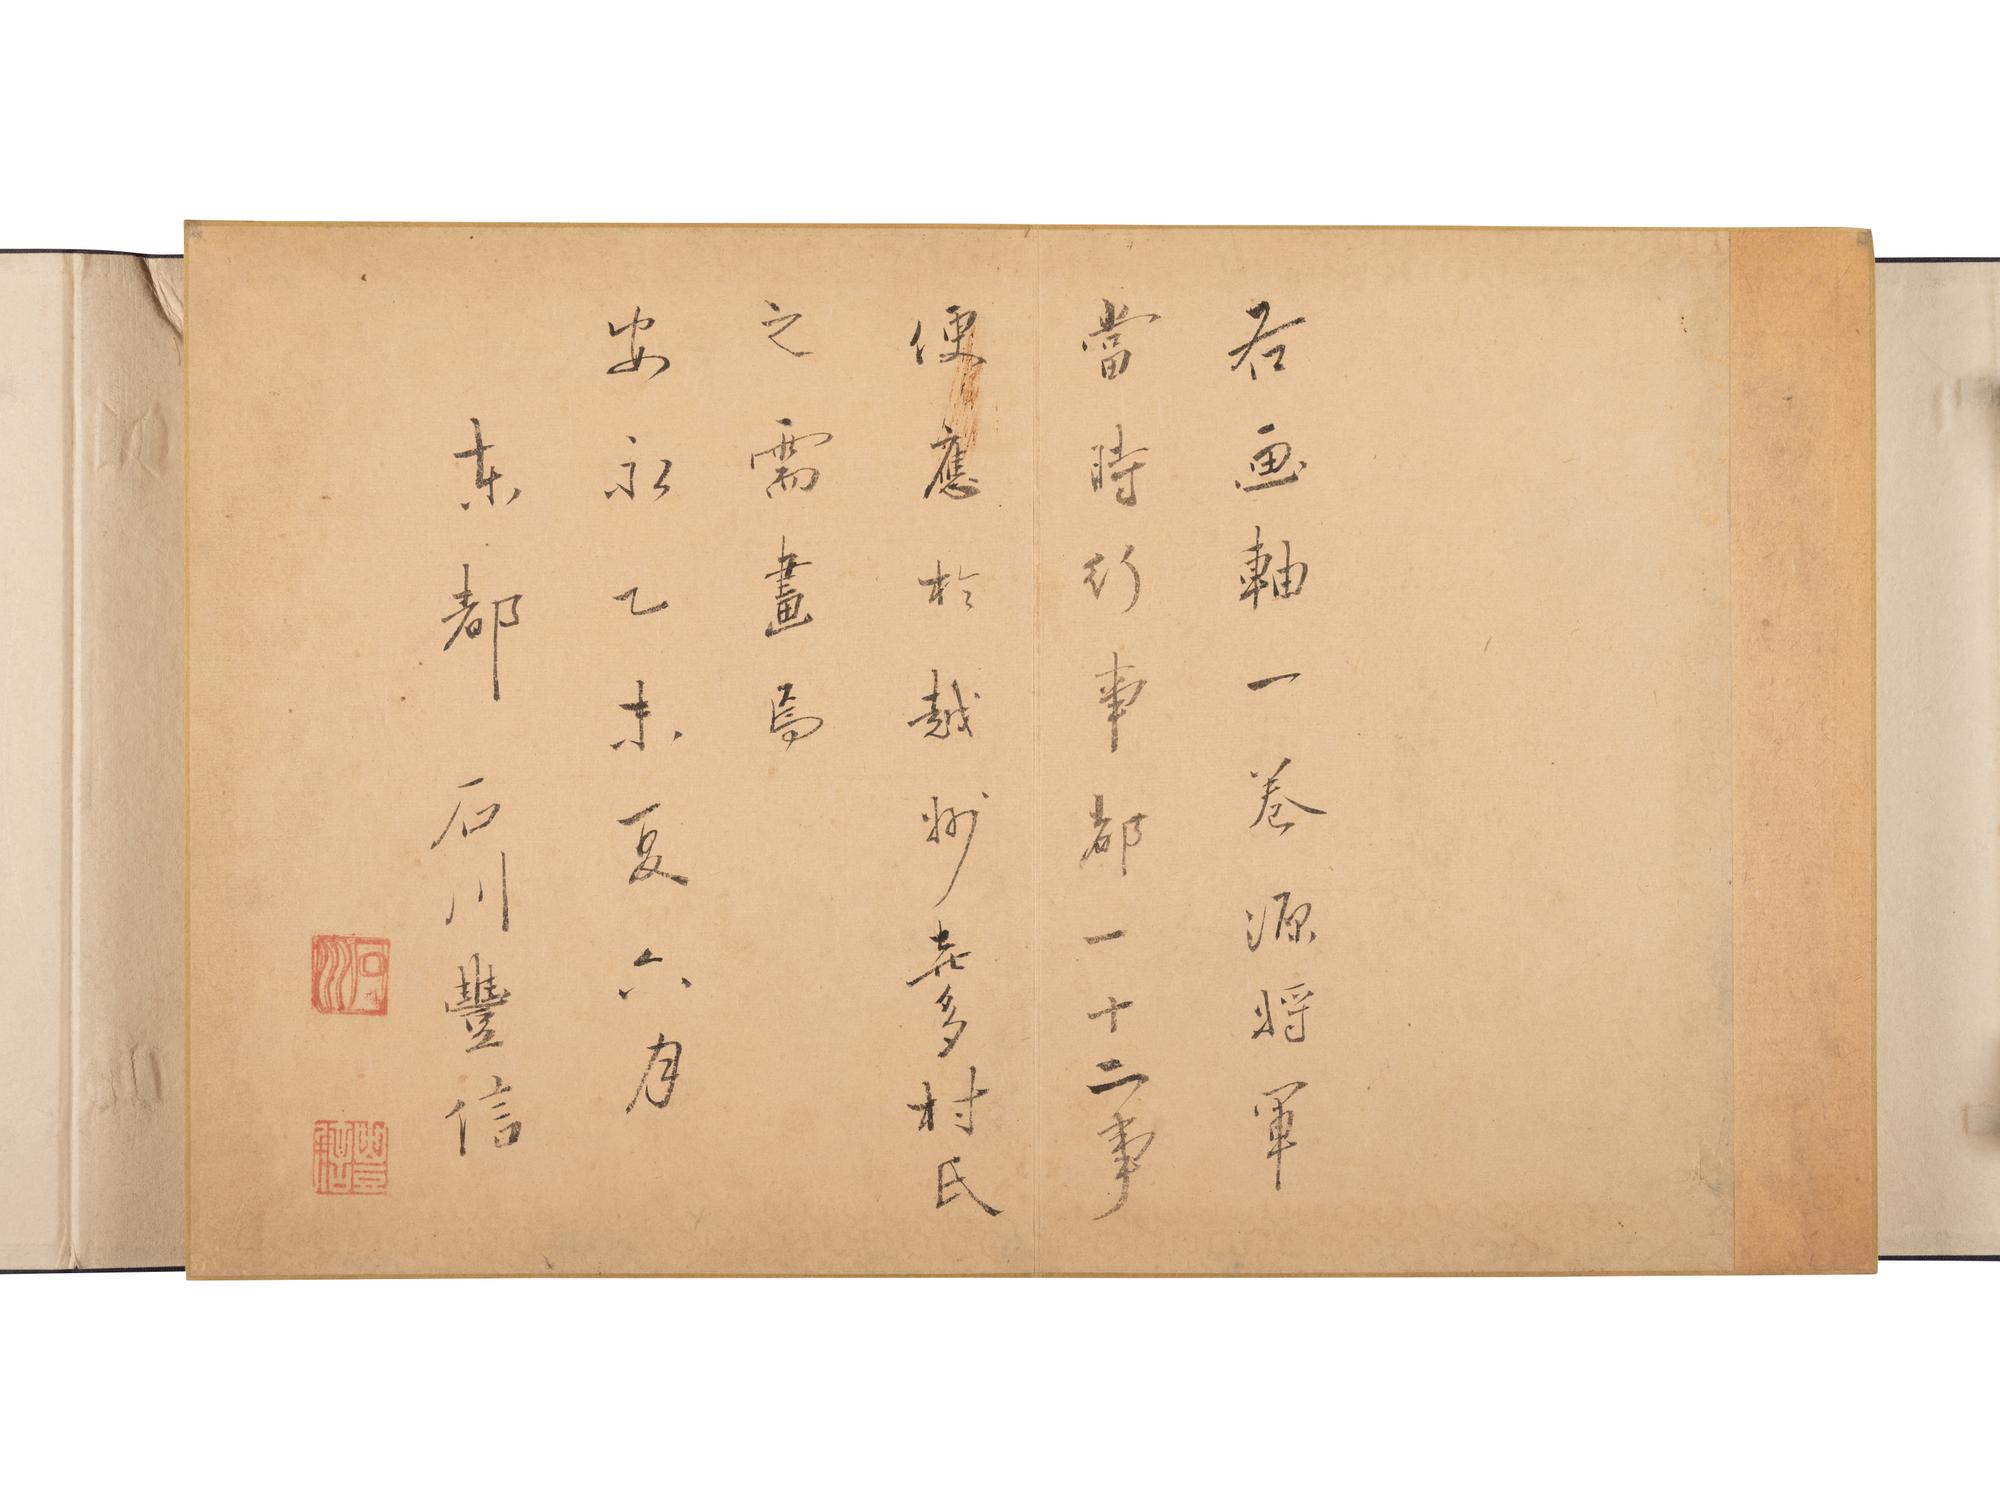 右画軸一巻源将軍
當時行事都一十二事
便應於越州㐂多村氏
之需畫焉
安永乙未夏六月
東都石川豐信
石川
豐信